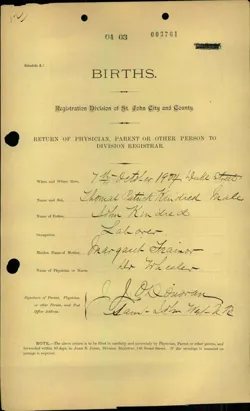 01 03
003761
Schedule A.
BIRTHS.
Registration Division of St. John City and County.
RETURN OF PHYSICIAN, PARENT OR OTHER PERSON TO
DIVISION REGISTRAR.
When and Where Born, 7th October 1904 Duke Street
Name and Sex, Thomas Patrick Kindred Male
Name of Father, John Kindred
Occupation, Laborer
Maiden Name of Mother, Margaret Trainor
Name of Physician or Nurse, Dr Wheeler
Signature of Person, Physician,
or other Person, and Post
Office Address.
J. J. O'Donovan
Saint John West
NOTE.—The above return is to be filled in carefully and accurately by Physician, Parent or other person, and